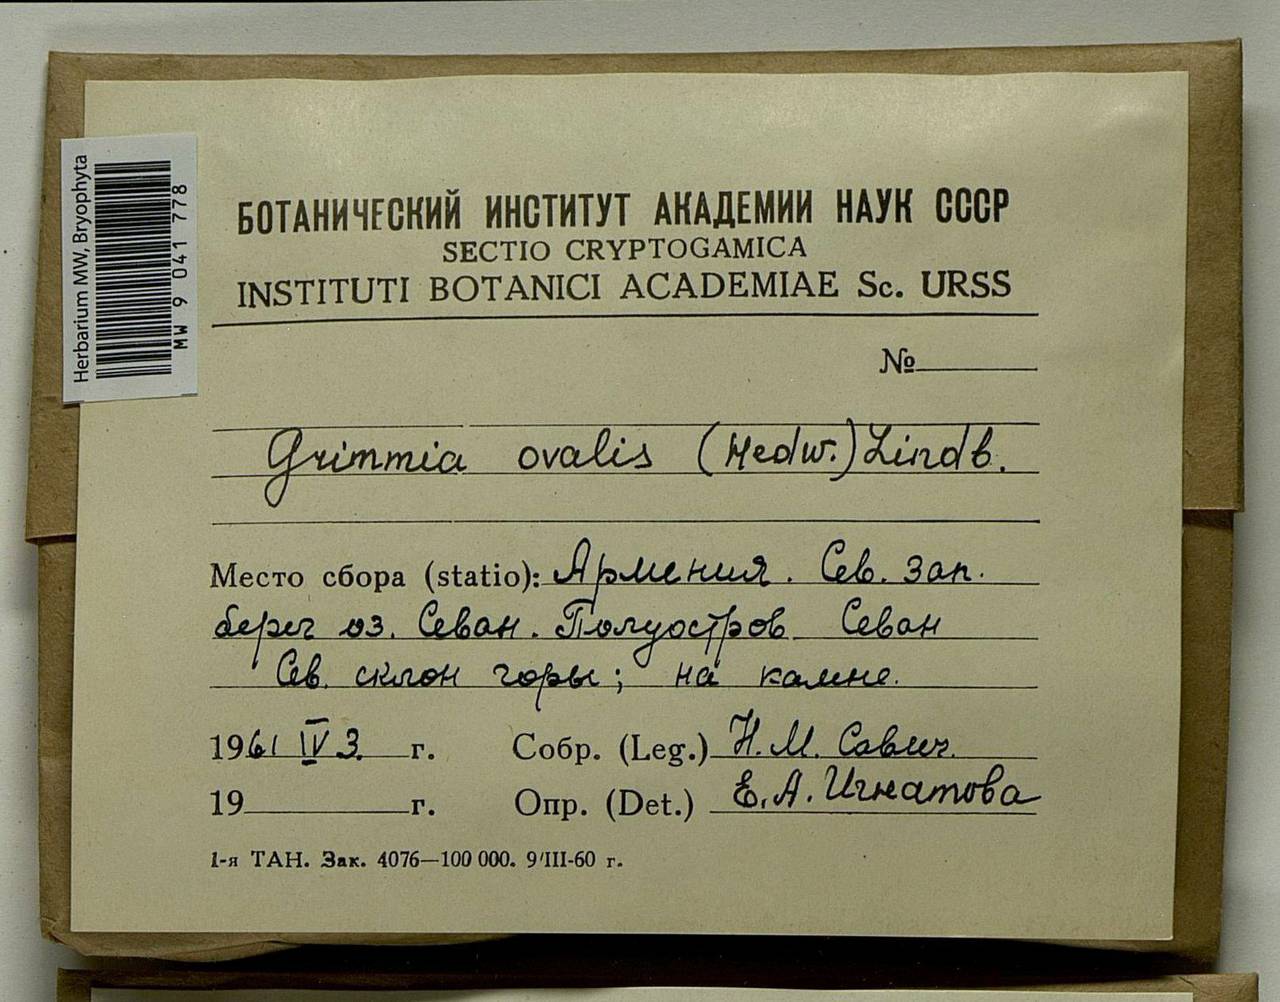 Herbarium MW, Bryophyta
MW 9 041 778
БОТАНИЧЕСКИЙ ИНСТИТУТ АКАДЕМИИ НАУК СССР
SECTIO CRYPTOGAMICA
INSTITUTI BOTANICI ACADEMIAE Sc. URSS
№
Grimmia ovalis (Hedw.) Lindb.
Место сбора (statio): Армения. Сев. зап.
берег оз. Севан. Полуостров Севан
Сев. склон горы; на камне.
1961 IV 3. г. Собр. (Leg.) Н. М. Савич.
19 г. Опр. (Det.) Е. А. Игнатова
1-я ТАН. Зак. 4076—100 000. 9/III-60 г.